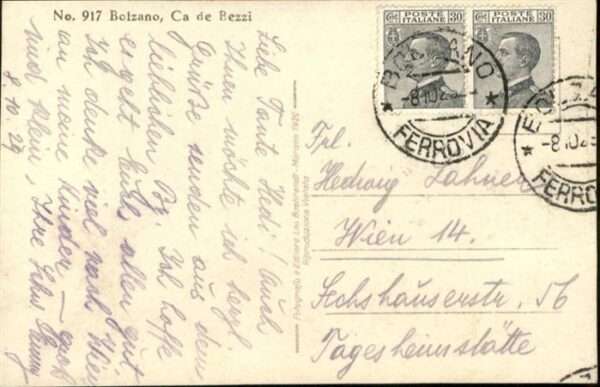 No. 917 Bolzano, Ca de Bezzi
Liebe Tante Hedi! Auch
Ihnen möchte ich herzl.
Grüße senden aus dem
lieblichen Bz. Ich hoffe
es geht Ihnen allen gut.
Ich denke viel nach Wien
an meine Kinder — groß
und klein, Ihre
8. 10. 29
POSTE ITALIANE 30
POSTE ITALIANE 30
BOLZANO
-8.10.29
FERROVIA
-8.10.29
FERROVIA
Frl.
Hedwig Lahner
Wien 14.
Sechshauserstr. 56
Tagesheimstätte
Riproduzione Vietata